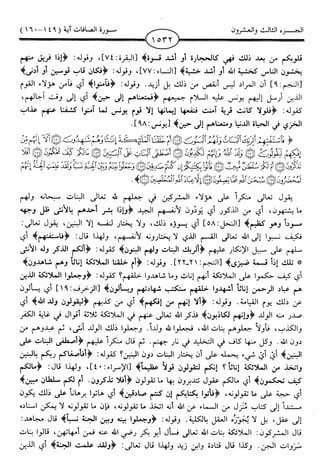 الجــزء الثالث والعشرون
١٥٣٢
سورة الصافات آية (١٤٩-١٦٠)
قلوبكم من بعد ذلك فهي كالحجارة أو أشد قسوة﴾ [البقرة:٧٤]، وقوله: ﴿إذا فريق منهم
يخشون الناس كخشية الله أو أشد خشية﴾ [النساء:٧٧]، وقوله: ﴿فكان قاب قوسين أو أدنى﴾
[النجم:٩] أن المراد ليس أنقص من ذلك بل أزيد. وقوله: ﴿فآمنوا﴾ أي فآمن هؤلاء القوم
الذين أرسل إليهم يونس عليه السلام جميعهم ﴿فمتعناهم إلى حين﴾ أي إلى وقت آجالهم،
كقوله: ﴿فلولا كانت قرية آمنت فنفعها إيمانها إلا قوم يونس لما آمنوا كشفنا عنهم عذاب
الخزي في الحياة الدنيا ومتعناهم إلى حين﴾ [يونس:٩٨].
﴿ فَاسْتَفْتِهِمْ أَلِرَبِّكَ الْبَنَاتُ وَلَهُمُ الْبَنُونَ ۝ أَمْ خَلَقْنَا الْمَلَائِكَةَ إِنَاثًا وَهُمْ شَاهِدُونَ ۝ أَلَا إِنَّهُم مِّنْ
إِفْكِهِمْ لَيَقُولُونَ ۝ وَلَدَ اللَّهُ وَإِنَّهُمْ لَكَاذِبُونَ ۝
يقول تعالى منكراً على هؤلاء المشركين في جعلهم لله تعالى البنات سبحانه ولهم
ما يشتهون، أي من الذكور أي يَوُدّون لأنفسهم الجيد ﴿وإذا بشر أحدهم بالأنثى ظل وجهه
مسوداً وهو كظيم﴾ [النحل:٥٨] أي يسوؤه ذلك، ولا يختار لنفسه إلا البنين، يقول تعالى:
فكيف نسبوا إلى الله تعالى القسم الذي لا يختارونه لأنفسهم، ولهذا قال: ﴿فاستفتهم﴾ أي
سلهم على سبيل الإنكار عليهم ﴿ألربك البنات ولهم البنون﴾ كقوله: ﴿ألكم الذكر وله الأنثى
* تلك إذاً قسمة ضيزى﴾ [النجم:٢١،٢٢]. وقوله: ﴿أم خلقنا الملائكة إناثاً وهم شاهدون﴾
أي كيف حكموا على الملائكة أنهم إناث وما شاهدوا خلقهم؟ كقوله: ﴿وجعلوا الملائكة الذين
هم عباد الرحمن إناثاً أشهدوا خلقهم ستكتب شهادتهم ويسألون﴾ [الزخرف:١٩] أي يسألون
عن ذلك يوم القيامة. وقوله: ﴿ألا إنهم من إفكهم﴾ أي من كذبهم ﴿ليقولون ولد الله﴾ أي
صدر منه الولد ﴿وإنهم لكاذبون﴾ فذكر الله تعالى عنهم في الملائكة ثلاثة أقوال في غاية الكفر
والكذب، فأولاً جعلوهم بنات الله، فجعلوا لله ولداً. وجعلوا ذلك الولد أنثى، ثم عبدوهم من
دون الله. وكل منها كاف في التخليد في نار جهنم. ثم قال منكراً عليهم ﴿أصطفى البنات على
البنين﴾ أي أيّ شيء يحمله على أن يختار البنات دون البنين؟ كقوله: ﴿أفأصفاكم ربكم بالبنين
واتخذ من الملائكة إناثاً ؟ إنكم لتقولون قولاً عظيماً﴾ [الإسراء:٤٠]، ولهذا قال: ﴿مالكم
كيف تحكمون﴾ أي مالكم عقول تتدبرون بها ما تقولون ﴿أفلا تذكرون. أم لكم سلطان مبين﴾
أي حجة على ما تقولونه، ﴿فأتوا بكتابكم إن كنتم صادقين﴾ أي هاتوا برهاناً على ذلك يكون
مستنداً إلى كتاب مُنزل من السماء عن الله أنه اتخذ ما تقولونه، فإن ما تقولونه لا يمكن استناده
إلى عقل، بل لا يُجوّزه العقل بالكلية. وقوله: ﴿وجعلوا بينه وبين الجنة نسباً﴾ قال مجاهد:
قال المشركون: الملائكة بنات الله تعالى فسأل أبو بكر رضي الله عنه فمن أمهاتهن، قالوا بنات
سَرَوات الجن. وكذا قال قتادة وابن زيد ولهذا قال تعالى: ﴿ولقد علمت الجنة﴾ أي الذين